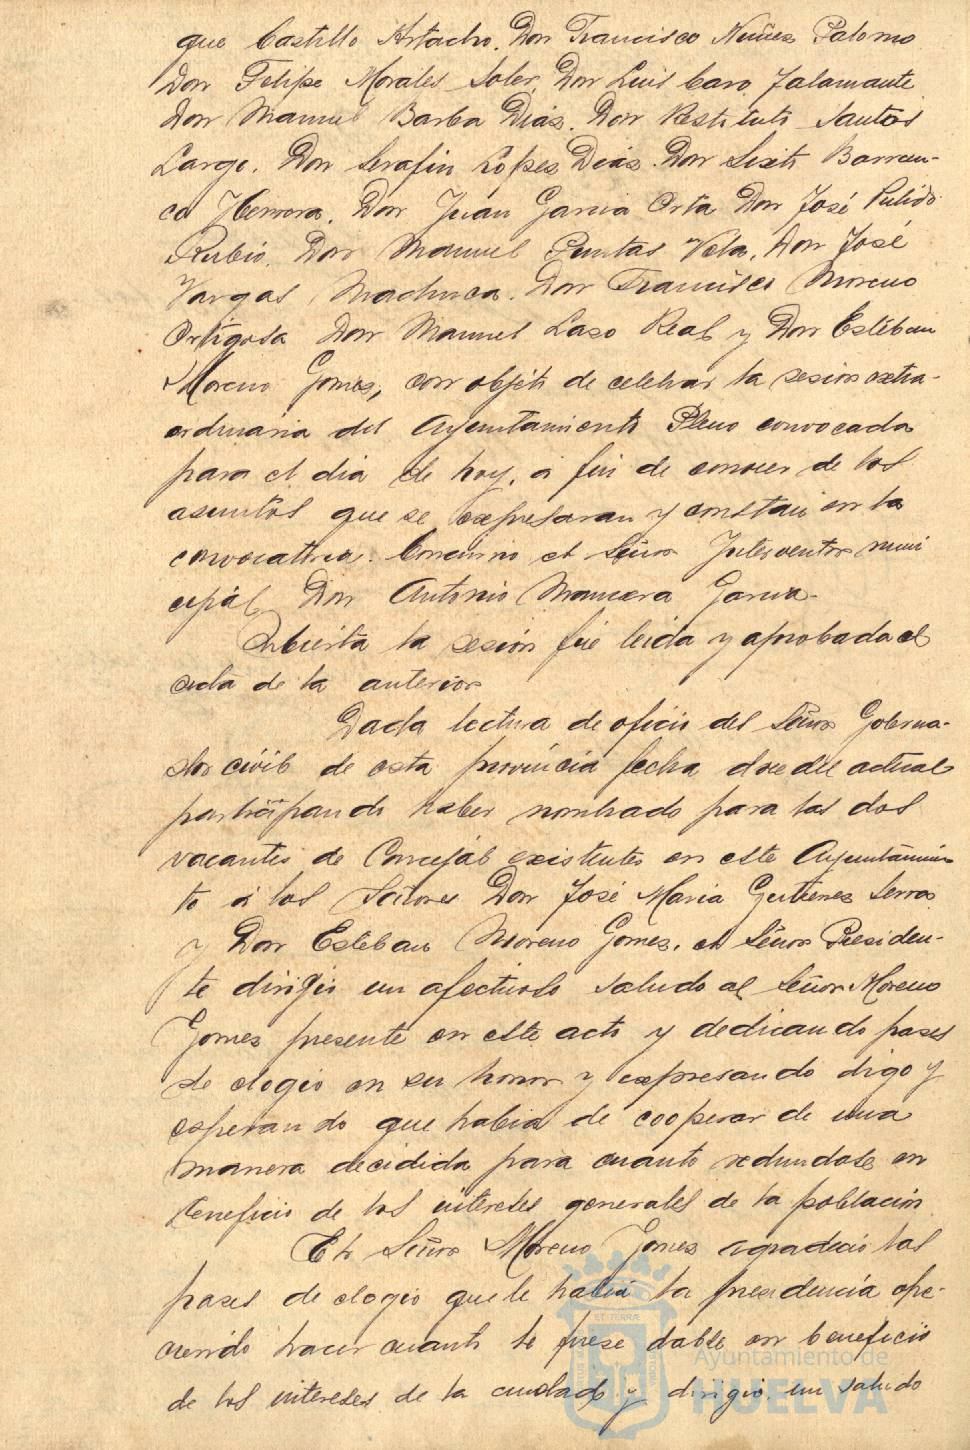 que Castillo Artacho. Don Francisco Nuñez Palomo
Don Felipe Morales Soler, Don Luis Caro Jalamante
Don Manuel Barba Diaz. Don Restituto Santos
Largo. Don Serafin Lopez Diaz. Don Sixto Barran-
co Herrera. Don Juan Garcia Orta Don José Pulido
Rubio. Don Manuel Puntas Vela. Don José
Vargas Machuca. Don Francisco Moreno
Ortigosa Don Manuel Laso Real y Don Estéban
Moreno Gomez, con objeto de celebrar la sesion extra-
ordinaria del Ayuntamiento Pleno convocada
para el dia de hoy, á fin de conocer de los
asuntos que se expresaran y constan en la
convocatoria. Concurrio el Señor Interventor muni
cipal Don Antonio Mancera Garcia.
Abierta la sesión fué leida y aprobada el
acta de la anterior
Dada lectura de oficio del Señor Goberna-
dor civil de esta provincia fecha doce del actual
participando haber nombrado para las dos
vacantes de Concejal existentes en este Ayuntamien
to á los Señores Don José Maria Gutierrez Serran
y Don Esteban Moreno Gomez. el Señor Presiden-
te dirigió un afectuoso saludo al Señor Moreno
Gomez presente en este acto y dedicando frases
de elogio en su honor y expresando digo y
esperando que habia de cooperar de una
manera decidida para cuanto redundase en
beneficio de los intereses generales de la población
El Señor Moreno Gomez agradeció las
frases de elogio que le habia la presidencia ofre-
ciendo hacer cuanto le fuese dable en beneficio
de los intereses de la ciudad y dirigió un saludo
Ayuntamiento de
HUELVA